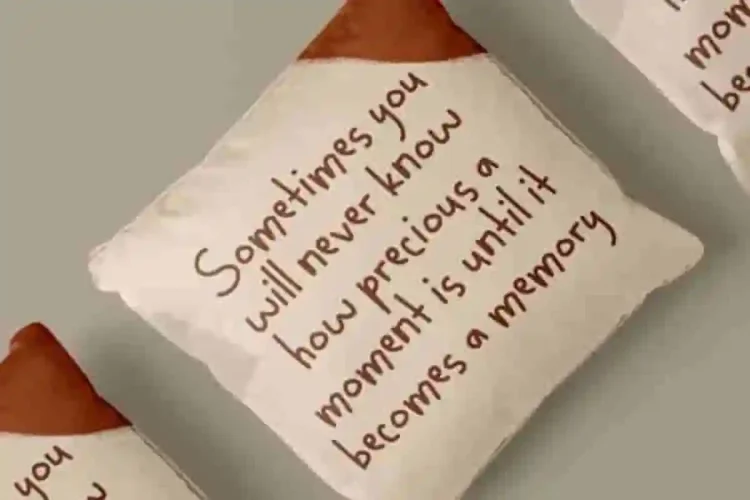 Sometimes you
will never know
how precious a
moment is until it
becomes a memory
you